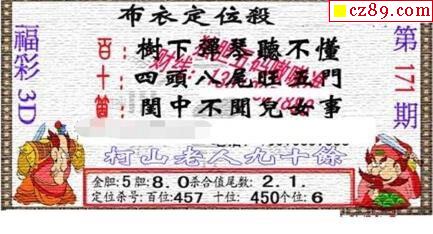 cz89.com
布衣定位殺
福彩3D
第171期
百：樹下彈琴聽不懂
十：四頭八尾旺五門
個：閨中不聞兒女事
柯山老人九十條
金胆:5胆:8.0杀合值尾数:2.1.
定位杀号:百位:457 十位:450个位:6